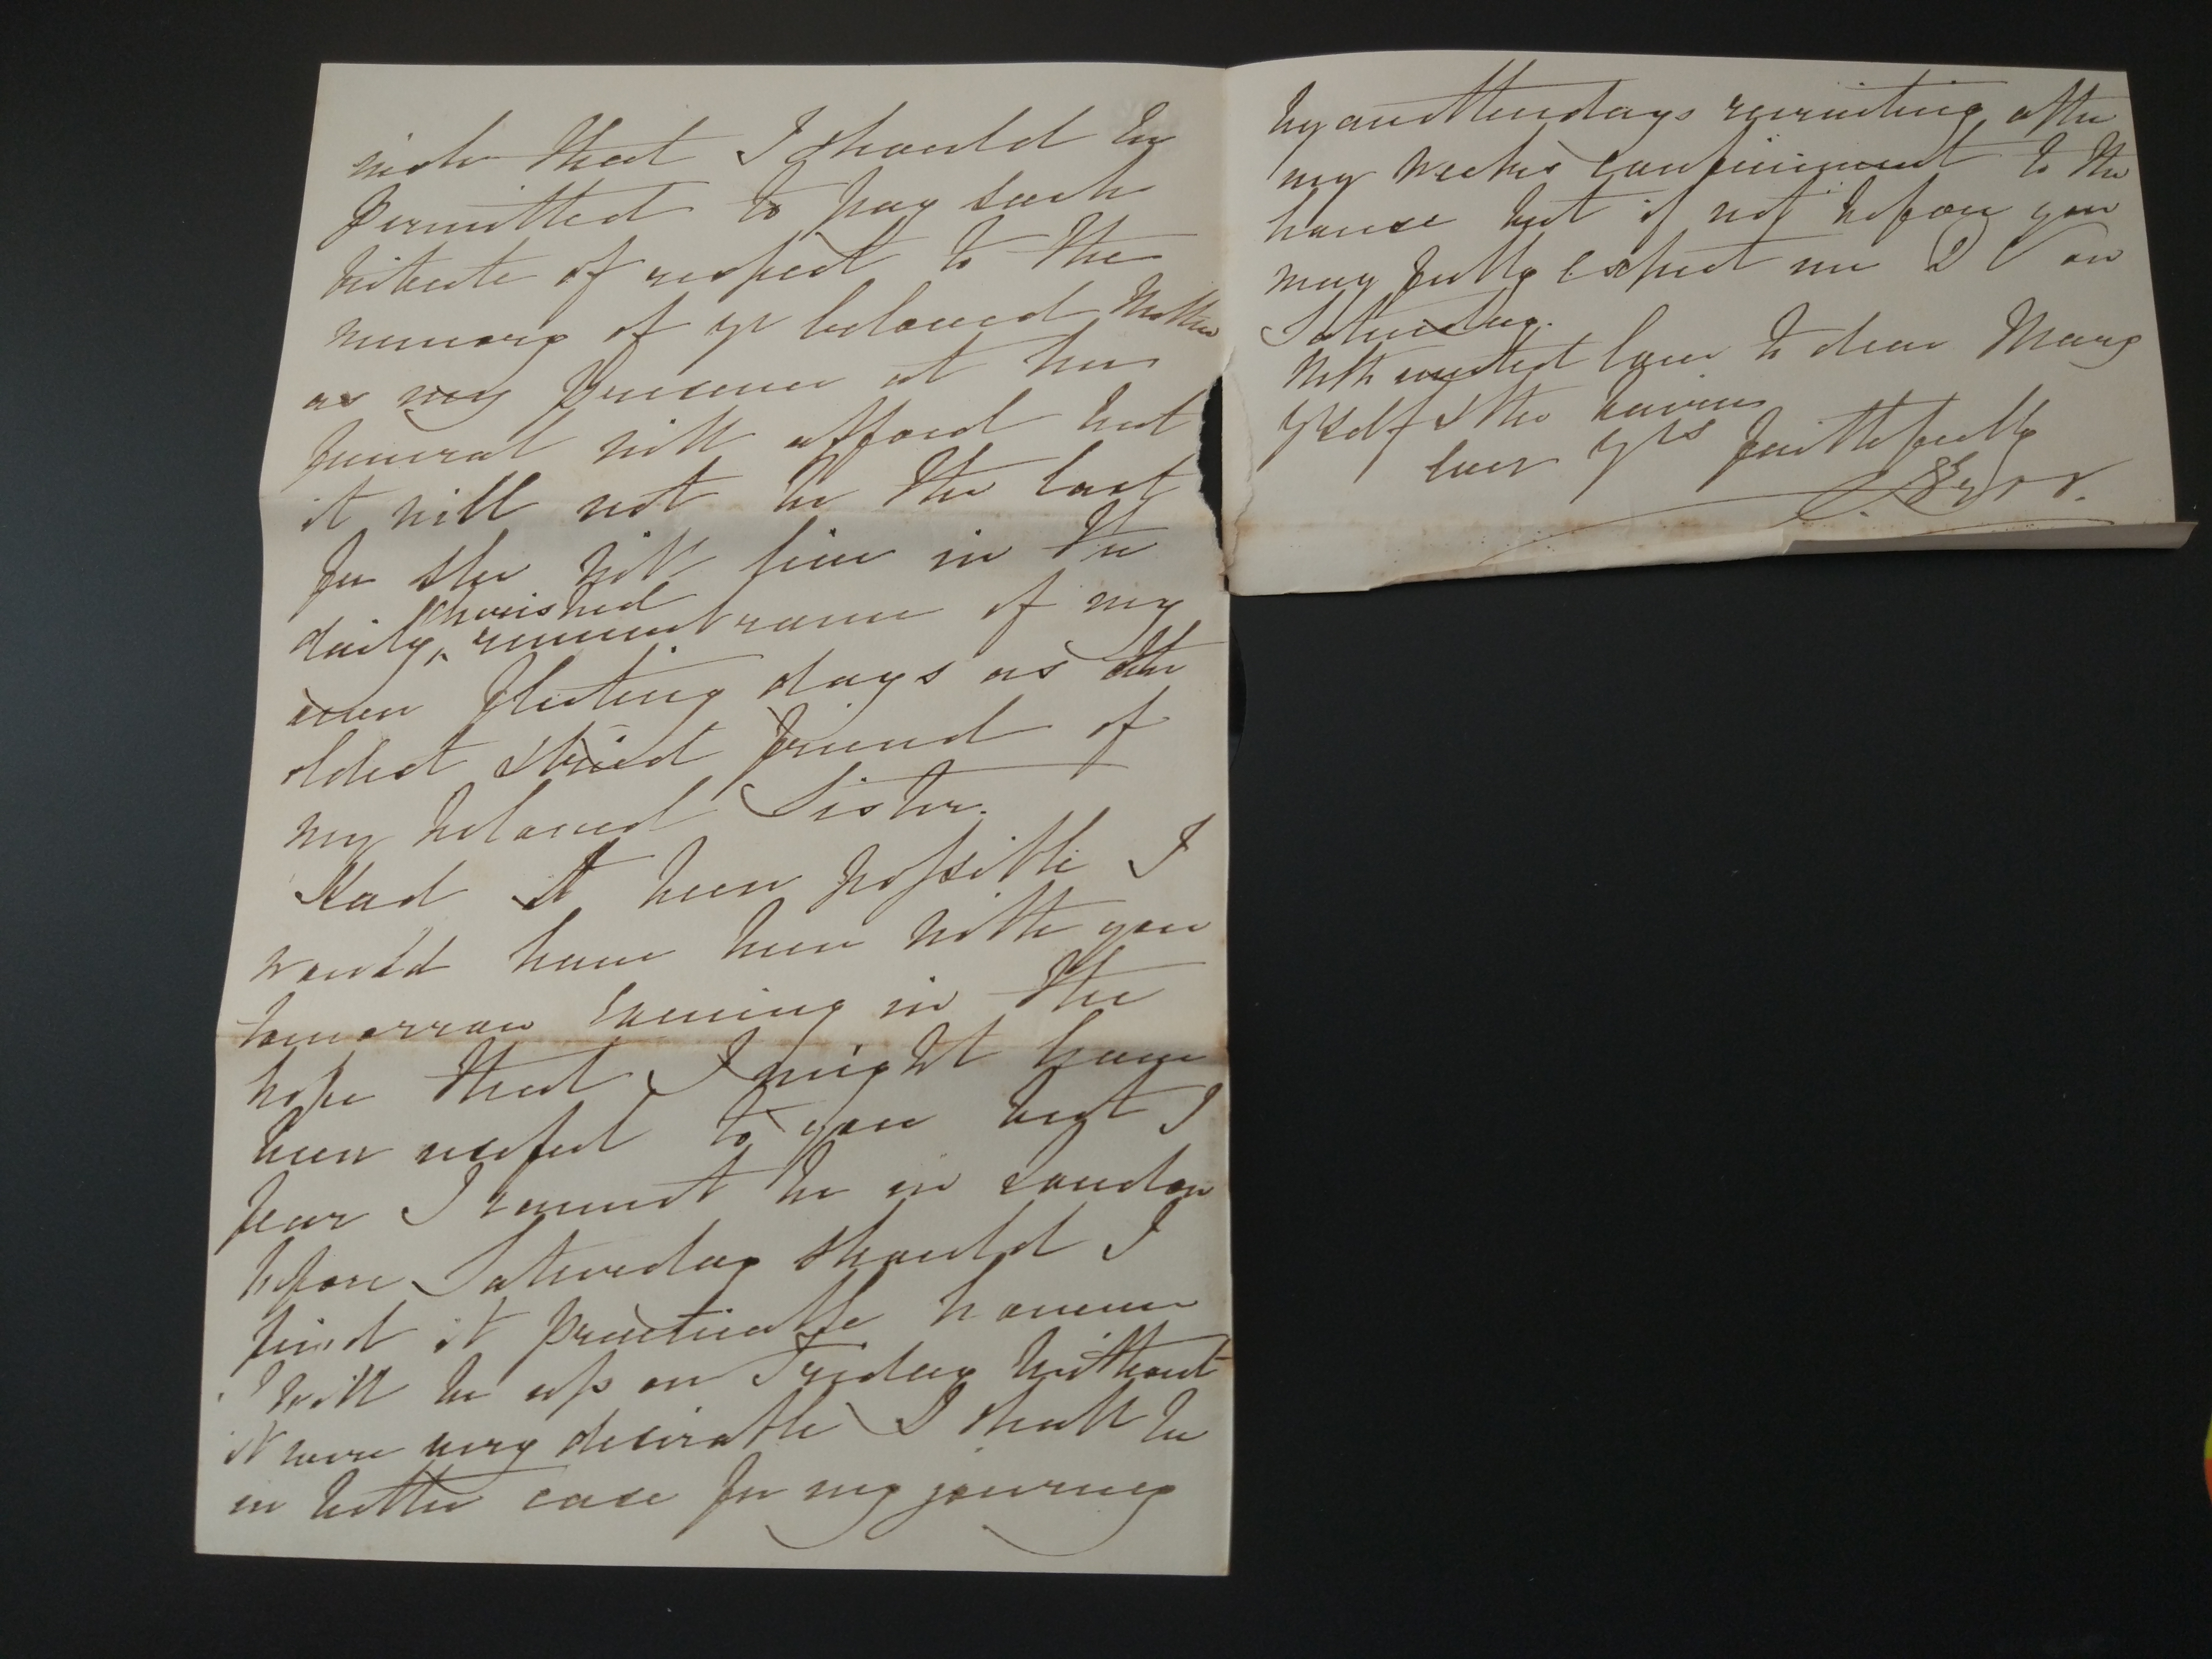 wish that I should be
permitted to pay such
tribute of respect to the
memory of yr beloved Mother
as my Presence at her
funeral will afford but
it will not be the last
for she will live in the
daily cherished remembrance of my
own fleeting days as the
oldest friend of
my beloved Sister.
Had it been possible I
would have been with you
tomorrow Evening in the
hope that I might have
been useful to you but I
fear I cannot be in London
before Saturday should I
find it practicable however
I will be up on Friday without
it were very desirable I shall be
in better case for my journey
by another days recruiting after
my weeks confinement to the
house but if not before you
may fully expect me D V on
Saturday.
With united love to dear Mary
Yrself & the
Ever Yrs faithfully